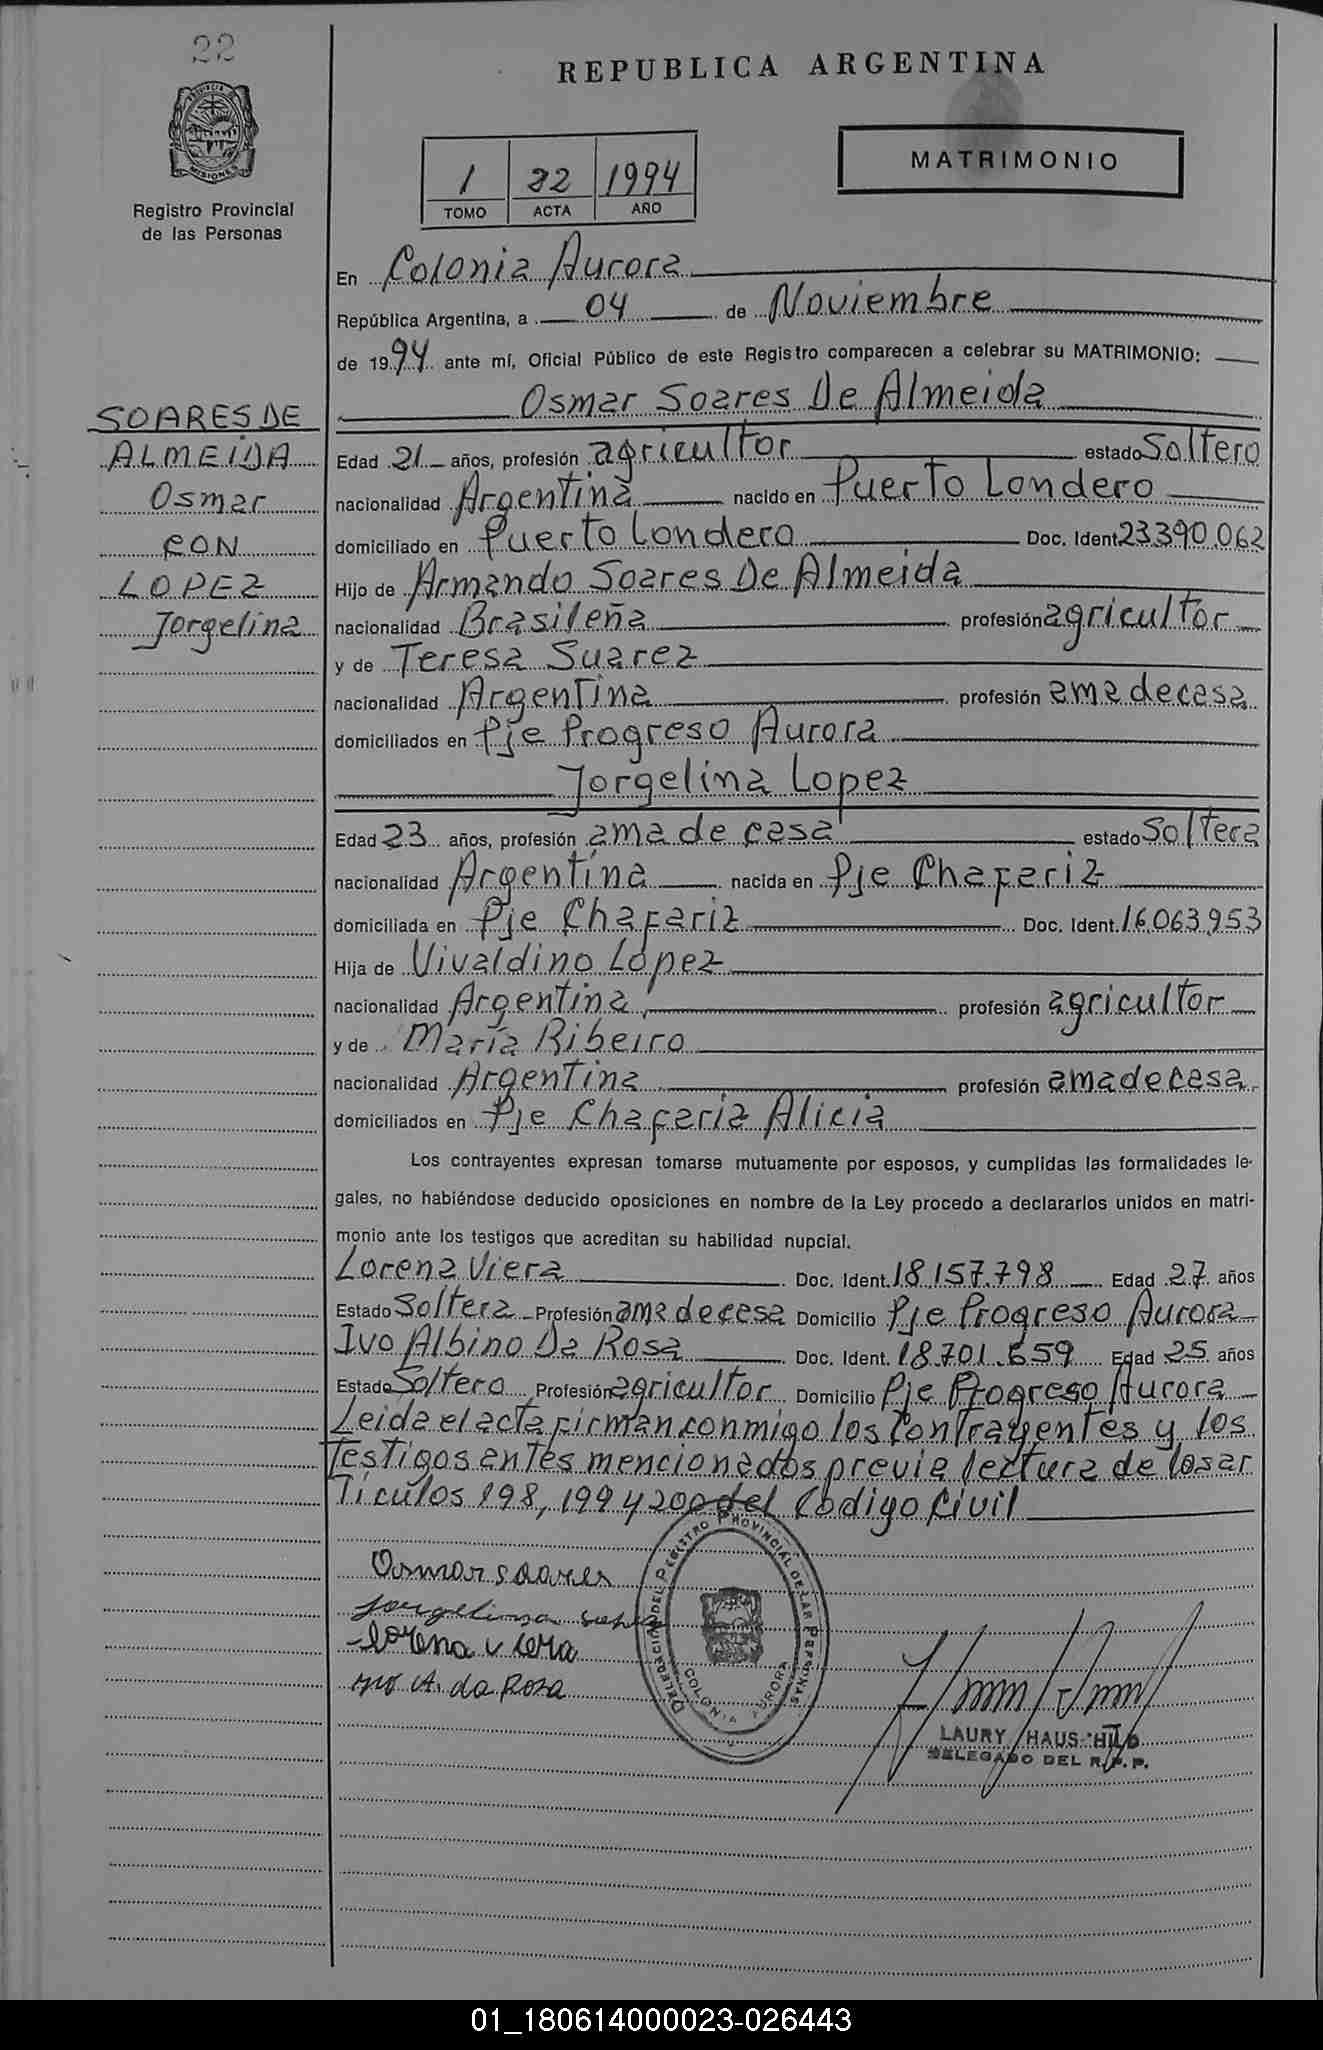 22
REPUBLICA ARGENTINA
PROVINCIA
MISIONES
Registro Provincial
de las Personas
1 22 1994
TOMO ACTA AÑO
MATRIMONIO
En Colonia Aurora
República Argentina, a 04 de Noviembre
de 1994 ante mí, Oficial Público de este Registro comparecen a celebrar su MATRIMONIO:
SOARES DE
ALMEIDA
Osmar
CON
LOPEZ
Jorgelina
Osmar Soares De Almeida
Edad 21 años, profesión agricultor estado Soltero
nacionalidad Argentina nacido en Puerto Londero
domiciliado en Puerto Londero Doc. Ident. 23390.062
Hijo de Armando Soares De Almeida
nacionalidad Brasileña profesión agricultor
y de Teresa Suarez
nacionalidad Argentina profesión ama de casa
domiciliados en Pje Progreso Aurora
Jorgelina Lopez
Edad 23 años, profesión ama de casa estado Soltera
nacionalidad Argentina nacida en Pje Chafariz
domiciliada en Pje Chafariz Doc. Ident. 16.063.953
Hija de Vivaldino Lopez
nacionalidad Argentina profesión agricultor
y de María Ribeiro
nacionalidad Argentina profesión ama de casa
domiciliados en Pje Chafariz Alicia
Los contrayentes expresan tomarse mutuamente por esposos, y cumplidas las formalidades le-
gales, no habiéndose deducido oposiciones en nombre de la Ley procedo a declararlos unidos en matri-
monio ante los testigos que acreditan su habilidad nupcial.
Lorena Viera Doc. Ident. 18.157.798 Edad 27 años
Estado Soltera Profesión ama de casa Domicilio Pje Progreso Aurora
Ivo Albino Da Rosa Doc. Ident. 18.701.659 Edad 25 años
Estado Soltero Profesión agricultor Domicilio Pje Progreso Aurora
Leida el acta firman conmigo los contrayentes y los
Testigos antes mencionados previa lectura de los ar
Tículos 198, 199 y 200 del Codigo Civil
Osmar soares
Jorgelina Lopez
Lorena Viera
Ivo A. da Rosa
DELEGACION DEL REGISTRO PROVINCIAL DE LAS PERSONAS
COLONIA AURORA
LAURY HAUS-HILD
DELEGADO DEL R.P.P.
01_180614000023-026443